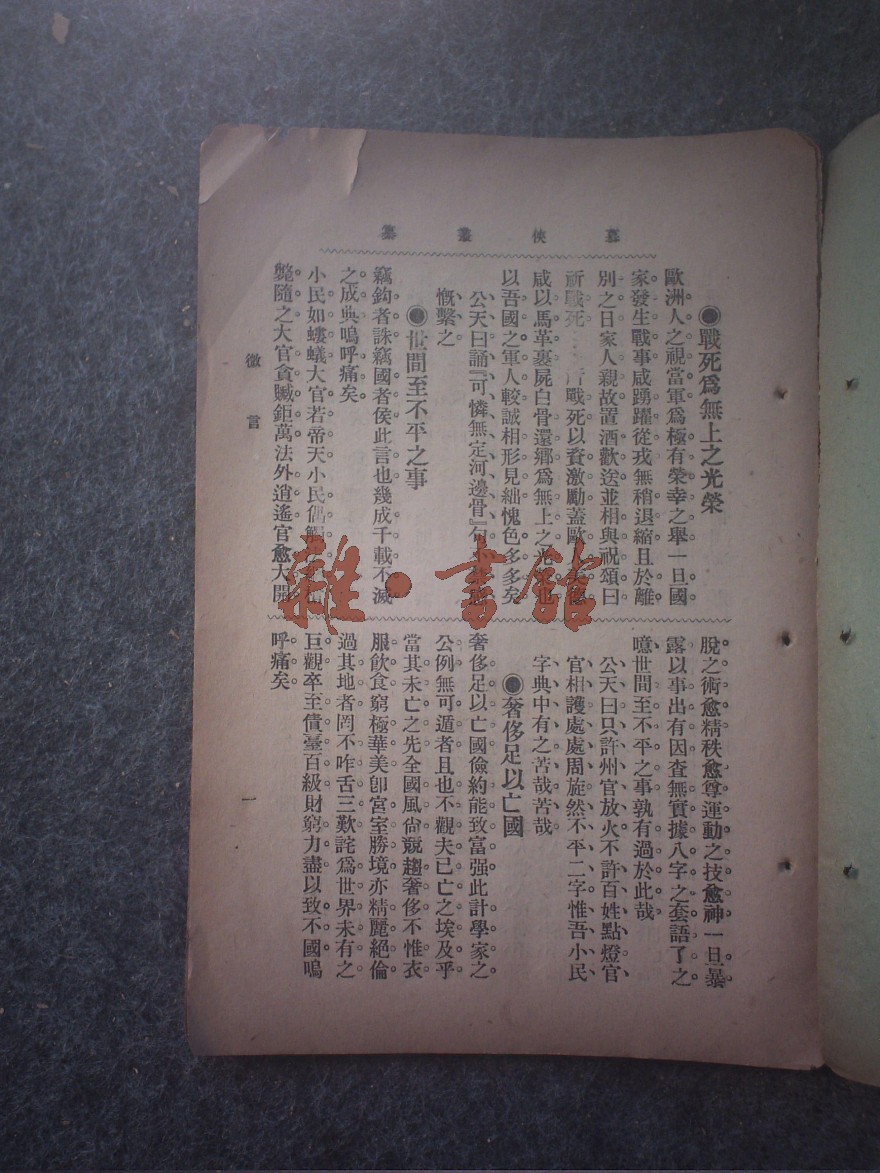 慕俠叢纂
●戰死爲無上之光榮
歐洲人之視當軍爲極有榮幸之舉一旦國
家發生戰事咸踴躍從戎無稍退縮且於離
別之日家人親故置酒歡送並相與祝頌曰
祈戰死 戰死以資激勵蓋歐人
咸以馬革裹屍白骨還鄉爲無上之光 也
以吾國之軍人較誠相形見絀愧色多多矣
公天曰誦『可憐無定河邊骨』句
慨繫之
●世間至不平之事
竊鈎者誅竊國者侯此言也幾成千載不滅
之成典嗚呼痛矣
小民如螻蟻大官若帝天小民偶觸
斃隨之大官貪贓鉅萬法外逍遙官愈大開
脫之術愈精秩愈尊運動之技愈神一旦暴
露以事出有因查無實據八字之套語了之
噫世間至不平之事孰有過於此哉
公天曰只許州官放火不許百姓點燈官
官相護處處周旋然不平二字惟吾小民
字典中有之苦哉苦哉
●奢侈足以亡國
奢侈足以亡國儉約能致富强此計學家之
公例無可遁者且也不觀夫已亡之埃及乎
當其未亡之先全國風尙競趨奢侈不惟衣
服飲食窮極華美卽宮室勝境亦精麗絕倫
過其地者罔不咋舌三歎詫爲世界未有之
巨觀卒至債臺百級財窮力盡以致不國嗚
呼痛矣
微言
一
雜·書館